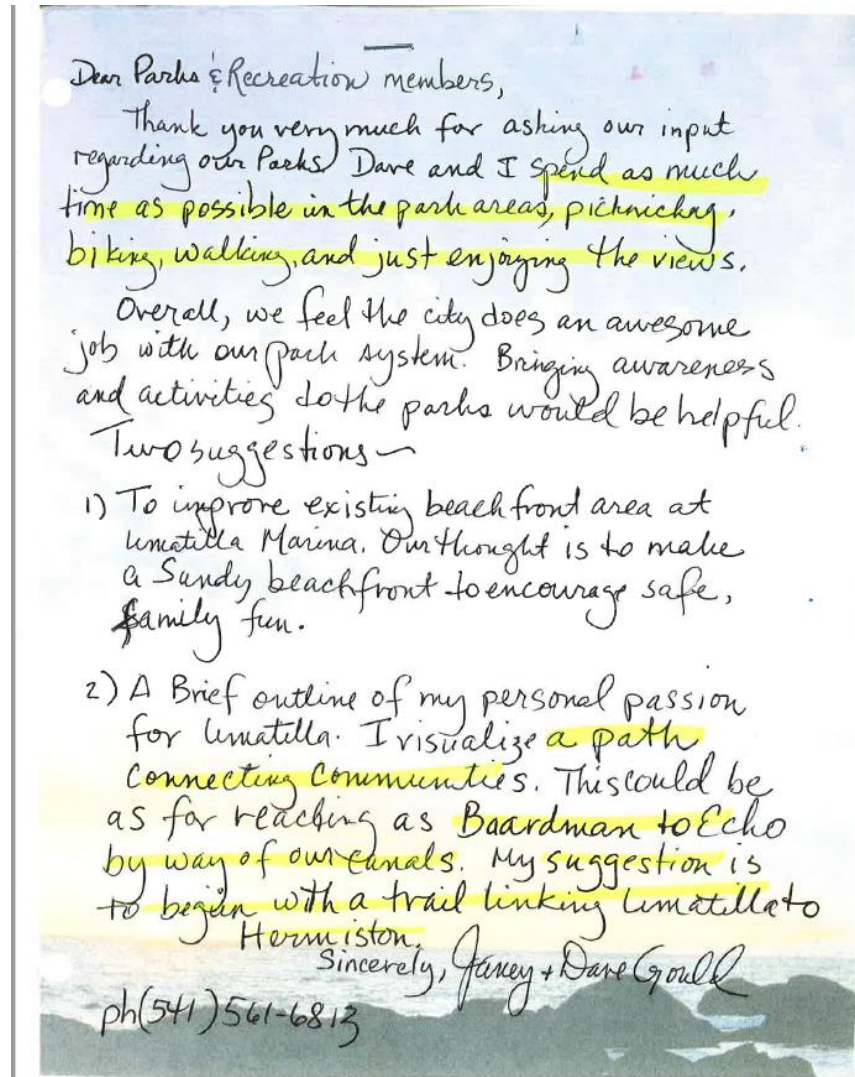 Dear Parks & Recreation members,
Thank you very much for asking our input
regarding our Parks. Dave and I spend as much
time as possible in the park areas, pichnicking,
biking, walking, and just enjoying the views.
Overall, we feel the city does an awesome
job with our park system. Bringing awareness
and activities to the parks would be helpful.
Two suggestions ~
1) To improve existing beachfront area at
Umatilla Marina. Our thought is to make
a Sandy beachfront to encourage safe,
family fun.
2) A Brief outline of my personal passion
for Umatilla. I visualize a path
Connecting Communities. This could be
as for reaching as Boardman to Echo
by way of our canals. My suggestion is
to begin with a trail linking Umatilla to
Hermiston.
Sincerely, Janey + Dave Gould
ph(541)561-6813